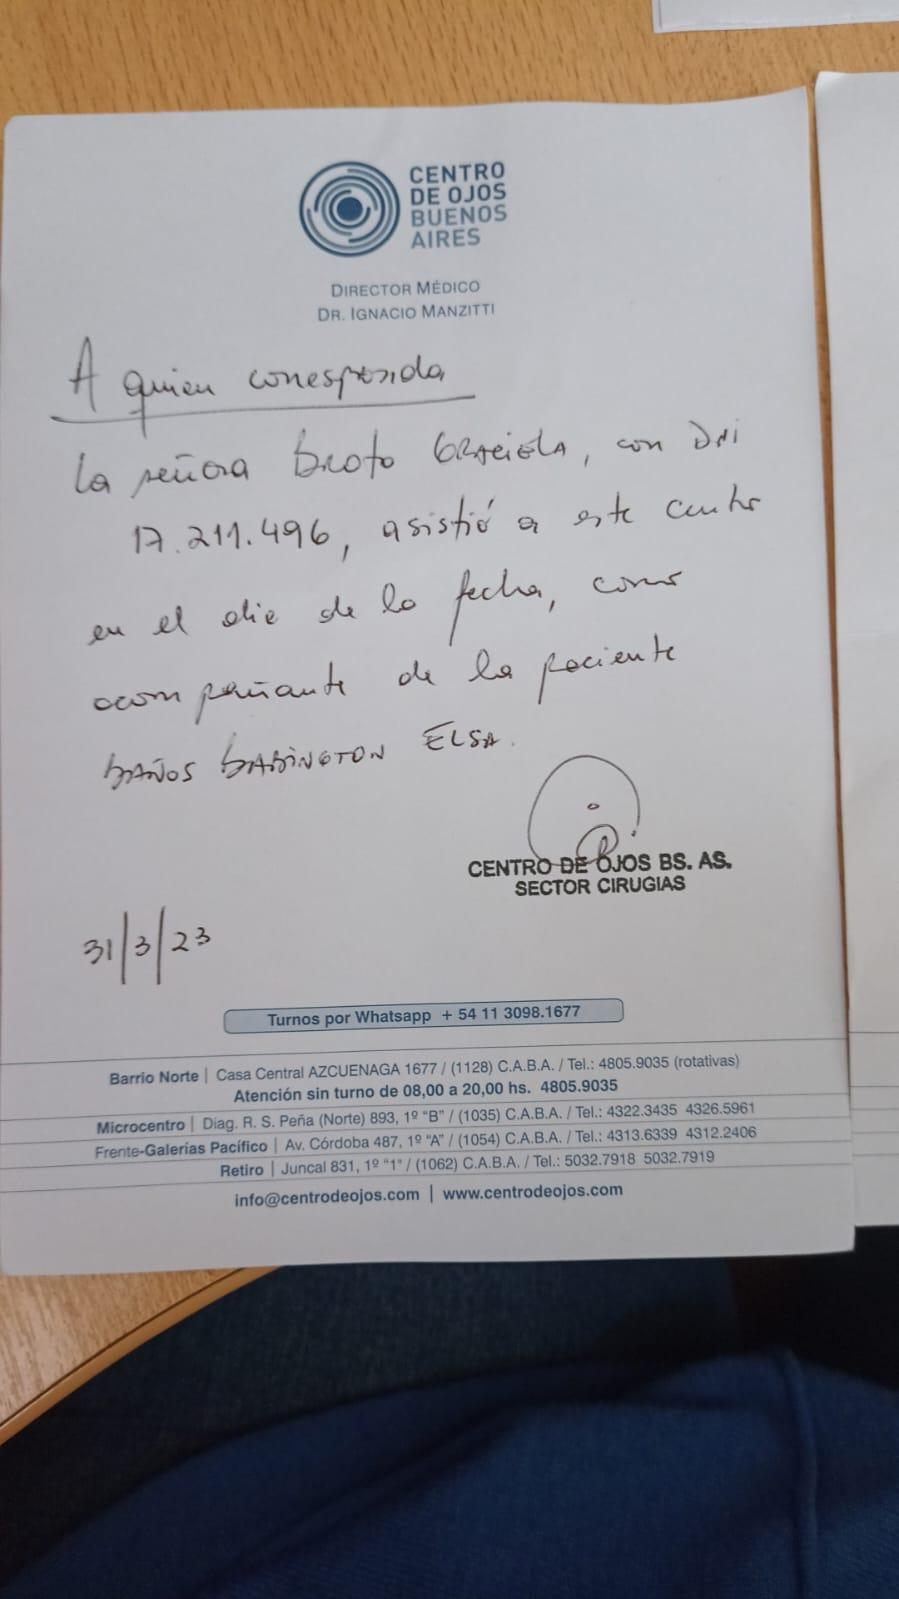 CENTRO
DE OJOS
BUENOS
AIRES
DIRECTOR MÉDICO
DR. IGNACIO MANZITTI
A quien corresponda
La señora Broto GRACIELA, con DNI
17.211.496, asistió a este centro
en el día de la fecha, como
acompañante de la paciente
BAÑOS BABINGTON ELSA.
CENTRO DE OJOS BS. AS.
SECTOR CIRUGIAS
31/3/23
Turnos por Whatsapp + 54 11 3098.1677
Barrio Norte | Casa Central AZCUENAGA 1677 / (1128) C.A.B.A. / Tel.: 4805.9035 (rotativas)
Atención sin turno de 08,00 a 20,00 hs. 4805.9035
Microcentro | Diag. R. S. Peña (Norte) 893, 1º "B" / (1035) C.A.B.A. / Tel.: 4322.3435 4326.5961
Frente-Galerías Pacífico | Av. Córdoba 487, 1º "A" / (1054) C.A.B.A. / Tel.: 4313.6339 4312.2406
Retiro | Juncal 831, 1º "1" / (1062) C.A.B.A. / Tel.: 5032.7918 5032.7919
info@centrodeojos.com | www.centrodeojos.com